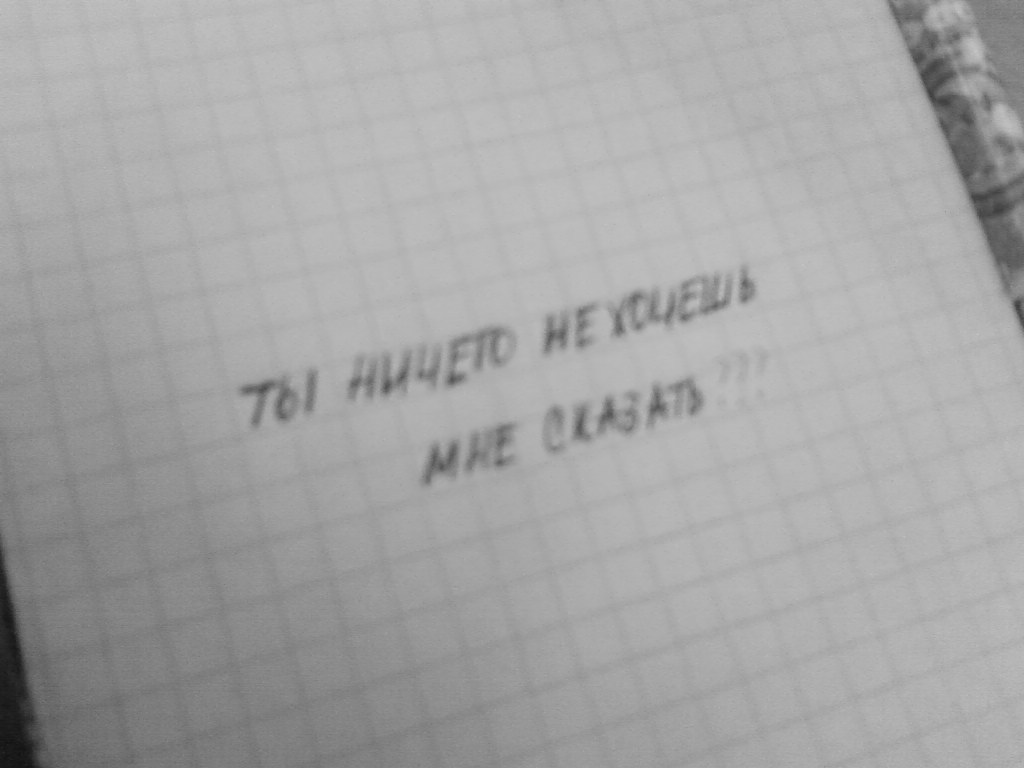 ТЫ НИЧЕГО НЕ ХОЧЕШЬ
МНЕ СКАЗАТЬ???